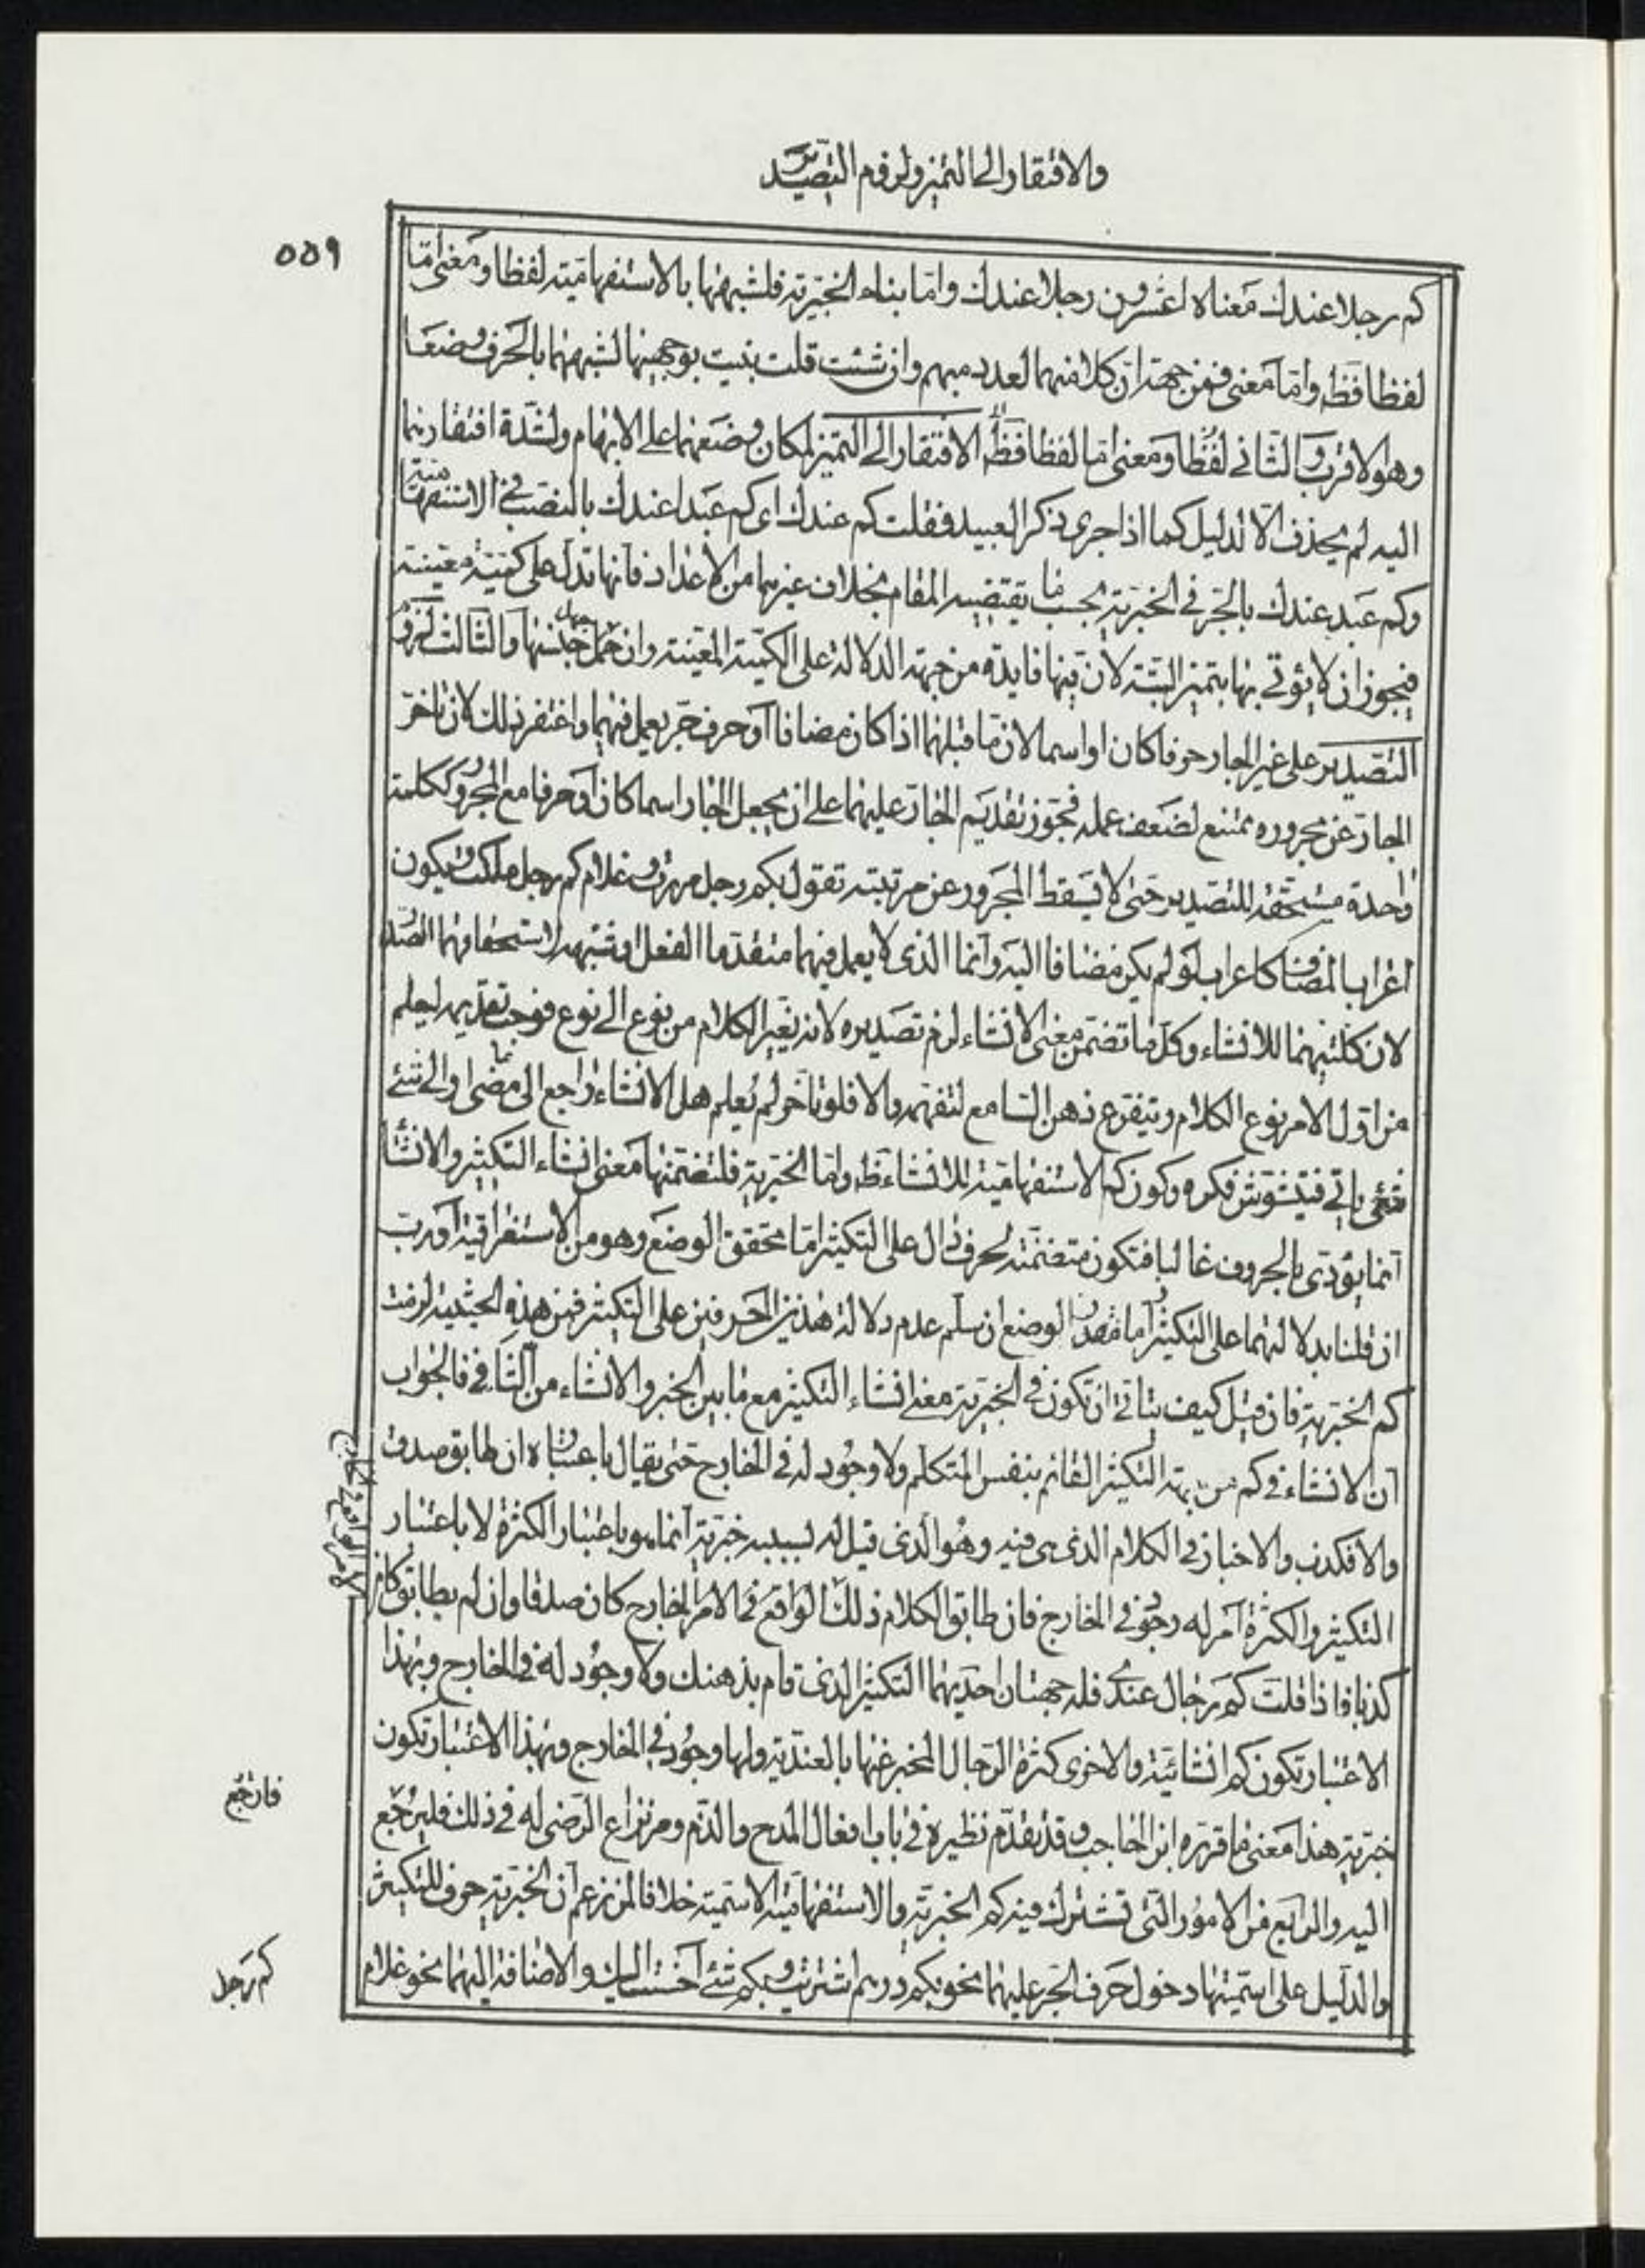 والافتقار الى التميز ولزوم التصدير
٥٥٩
كم رجلا عندك معناه اعشرون رجلا عندك واما بناء الخبرية فلشبهها بالاستفهامية لفظا ومعنى اما
لفظا فظ واما معنى فمن جهة ان كلا منهما لعدد مبهم وان شئت قلت بنيت بوجهيها لشبههما بالحرف وضعا
وهو الاقرب والثاني لفظا ومعنى اما لفظا فظ الافتقار الى التميز لمكان وضعهما على الابهام ولشدة افتقارهما
اليه لم يحذف الا لدليل كما اذا جرى ذكر العبيد فقلت كم عندك اى كم عبدا عندك بالنصب فى الاستفهامية
وكم عبد عندك بالجر فى الخبرية بحسب ما يقتضيه المقام بخلاف غيرهما من الاعداد فانها تدل على كمية معينة
فيجوز ان لا يؤتى بها بتميز البتة لان فيها فايدة من جهة الدلالة على الكمية المعينة وان جهل جنسها والثالث لزوم
التصدير على غير الجار حرفا كان او اسما لان ما قبلهما اذا كان مضافا او حرف جر يعمل فيهما واغتفر ذلك لان تاخر
الجار عن مجروره ممتنع لضعف عمله فجوز تقديم الجار عليهما على ان يجعل الجار اسما كان او حرفا مع المجرور ككلمة
واحدة مستحقة للتصدير حتى لا يسقط المجرور عن مرتبته تقول بكم رجل مررت وغلام كم رجل ملكت ويكون
اعراب المضاف كاعراب لو لم يكن مضافا اليه وانما الذى لا يعمل فيهما متقدما الفعل او شبهه لاستحقاقهما الصدر
لان كلتيهما للانشاء وكل ما تضمن معنى الانشاء لزم تصديره لانه يغير الكلام من نوع الى نوع فوجب تقديمه ليعلم
من اول الامر نوع الكلام ويتفرغ ذهن السامع لتفهمه والا فلو تاخر لم يعلم هل الانشاء راجع الى ما مضى او الى شئ
يأتي فيتشوش فكره وكون كم الاستفهامية للانشاء ظ واما الخبرية فلتضمنها معنى انشاء التكثير والانشا
انما يؤدى بالحروف غالبا فتكون متضمنة لحرف دال على التكثير اما محقق الوضع وهو من الاستغراقية او رب
ان قلنا بدلالتهما على التكثير او مقدر الوضع ان سلم عدم دلالة هذين الحرفين على التكثير فمن هذه الحيثية لزمت
كم الخبرية فان قيل كيف يتأتى ان تكون فى الخبرية معنى انشاء التكثير مع ما بين الخبر والانشاء من التنافى فالجواب
ان الانشاء فى كم من جهة التكثير القائم بنفس المتكلم ولا وجود له فى الخارج حتى يقال باعتباره ان طابق صدق
والا فكذب والاخبار فى الكلام الذى هى فيه وهو الذى قيل له بسببه خبرية انما هو باعتبار الكثرة لا باعتبار
التكثير والكثرة امر له وجود فى الخارج فان طابق الكلام ذلك الواقع فى الامر الخارج كان صدقا وان لم يطابق كان
كذبا فاذا قلت كم رجال عندى فله جهتان احديهما التكثير الذى قام بذهنك ولا وجود له فى الخارج وبهذا
الاعتبار تكون كم انشائية والاخرى كثرة الرجال المخبر عنها بالعندية ولها وجود فى الخارج وبهذا الاعتبار تكون
خبرية هذا معنى ما قرره ابن الحاجب وقد تقدم نظيره فى باب افعال المدح والذم ومر نزاع الرضى له فى ذلك فليرجع
اليه والرابع من الامور التى تشترك فيه كم الخبرية والاستفهامية الاسمية خلافا لمن زعم ان الخبرية حرف للتكثير
والدليل على اسميتها دخول حرف الجر عليهما نحو بكم درهم اشتريت وبكم شئ احسنت اليك والاضافة اليهما نحو غلام
فارجع
كم رجل